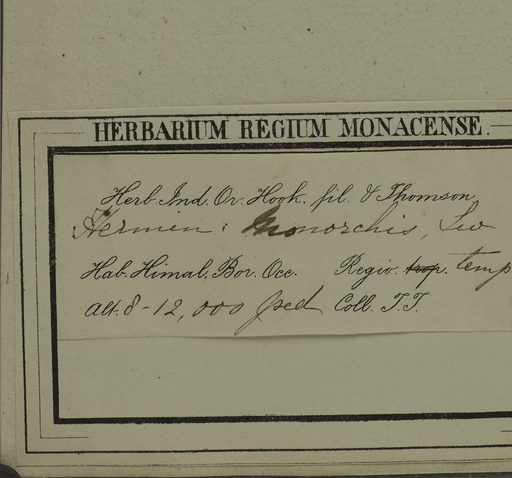 HERBARIUM REGIUM MONACENSE.
Herb. Ind. Or. Hook. fil. & Thomson
Hermin: Monorchis,
Hab. Himal. Bor. Occ. Regio. trop. temp
Alt. 8-12,000 ped Coll. T.T.